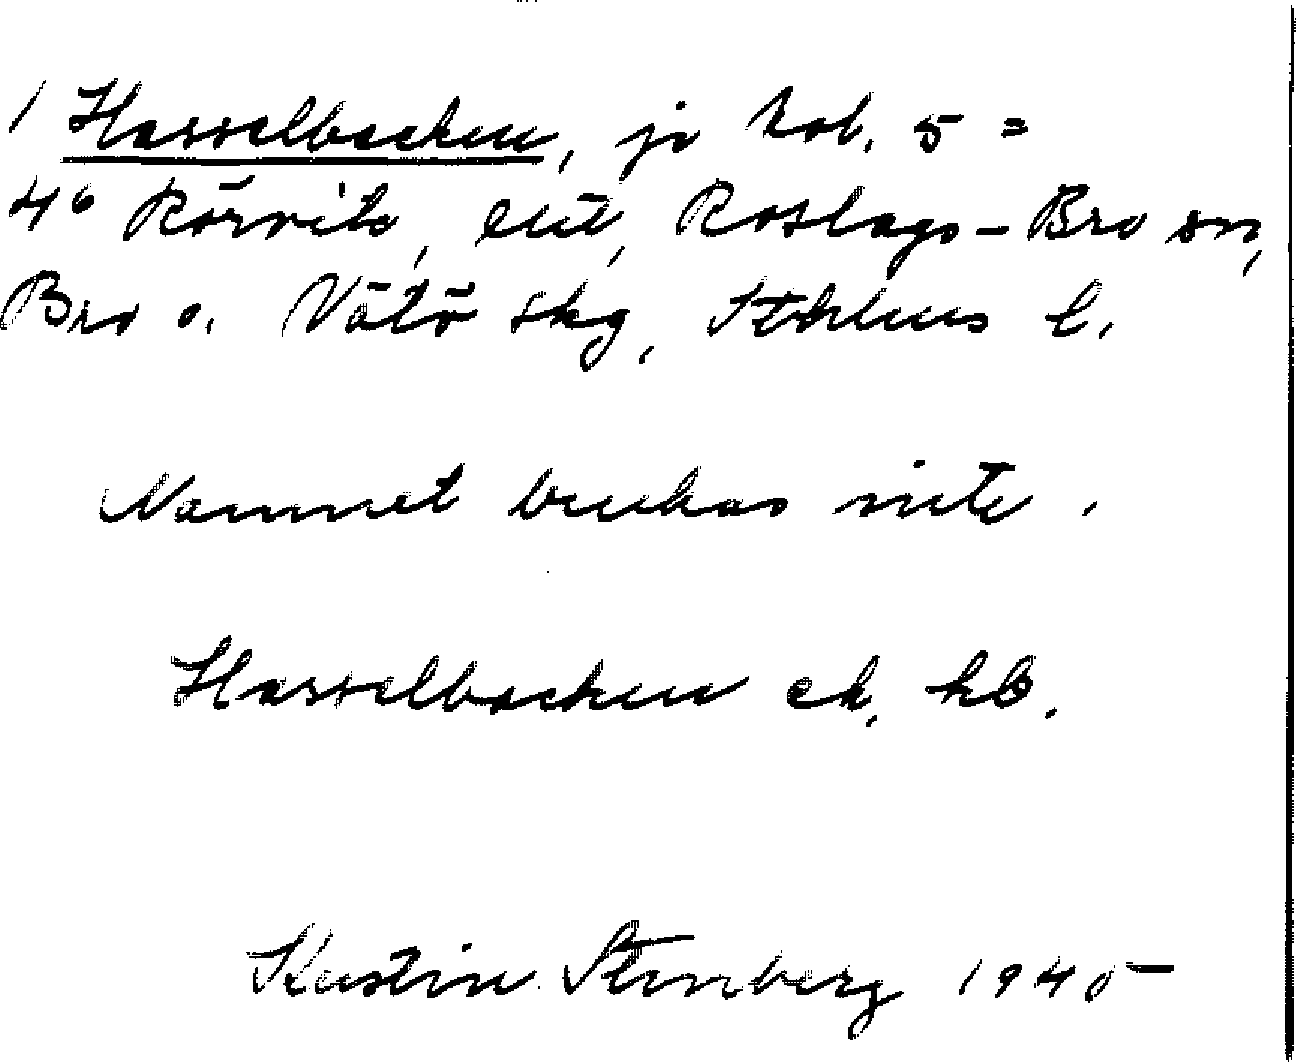 1 Hasselbacken, jo hob. 5 =
4⁶ Rörvik, Roslags-Bro sn,
Bro o. Vätö skg, Sthlms l.
Namnet brukas inte.
Hasselbacken ek. kb.
Kerstin Stenberg 1945